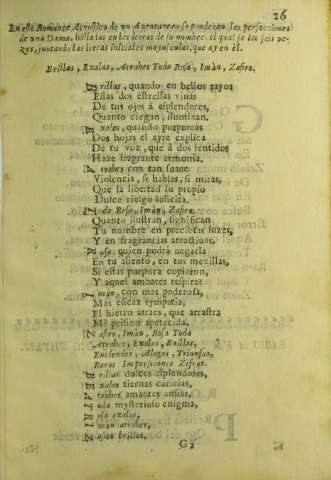 26
En este Romance Acrostico de un Aventurero se ponderan las perfecciones
de una Dama, hallarás en las letras de su nombre, el qual se lee seis ve-
zes, juntando las letras iniciales mayusculas, que ay en èl.
Brillas, Exalas, Atrahes Toda Rosa, Imàn, Zafiro.
Brillas, quando en bellos rayos
Estas dos estrellas vivas
De tus ojos à esplendores,
Quanto ciegan, iluminan.
Exalas, quando purpureas
Dos hojas el ayre explica
De tu voz, que à dos sentidos
Haze fragrante armonia.
Atrahes con tan suave
Violencia, si hablas, si miras,
Que la libertad su propio
Dulce riesgo solicita.
Toda Rosa, Imàn, Zafiro.
Quanto ilustran, significan
Tu nombre en preciosas luzes,
Y en fragrancias atractivas,
Rosa, quien podrà negarla
En tu aliento, en tus mexillas,
Si estas purpura copiaron,
Y aquel ambares respira?
Imàn, con mas poderosa,
Mas eficaz sympatia,
El hierro atraes, que arrastra
Mi prision apetecida.
Zafiro, Imàn, Rosa Toda
Atrahes, Exalas, Brillas,
Enciendes, Alagas, Triunfas,
Raras Impressiones Zifras.
Brillas dulces esplendores,
Exalas tiernas caricias,
Atrahes amantes ansias,
Toda mysterioso enigma,
Rosa exalas,
Imàn atrahes,
Zafiro brillas.
G2